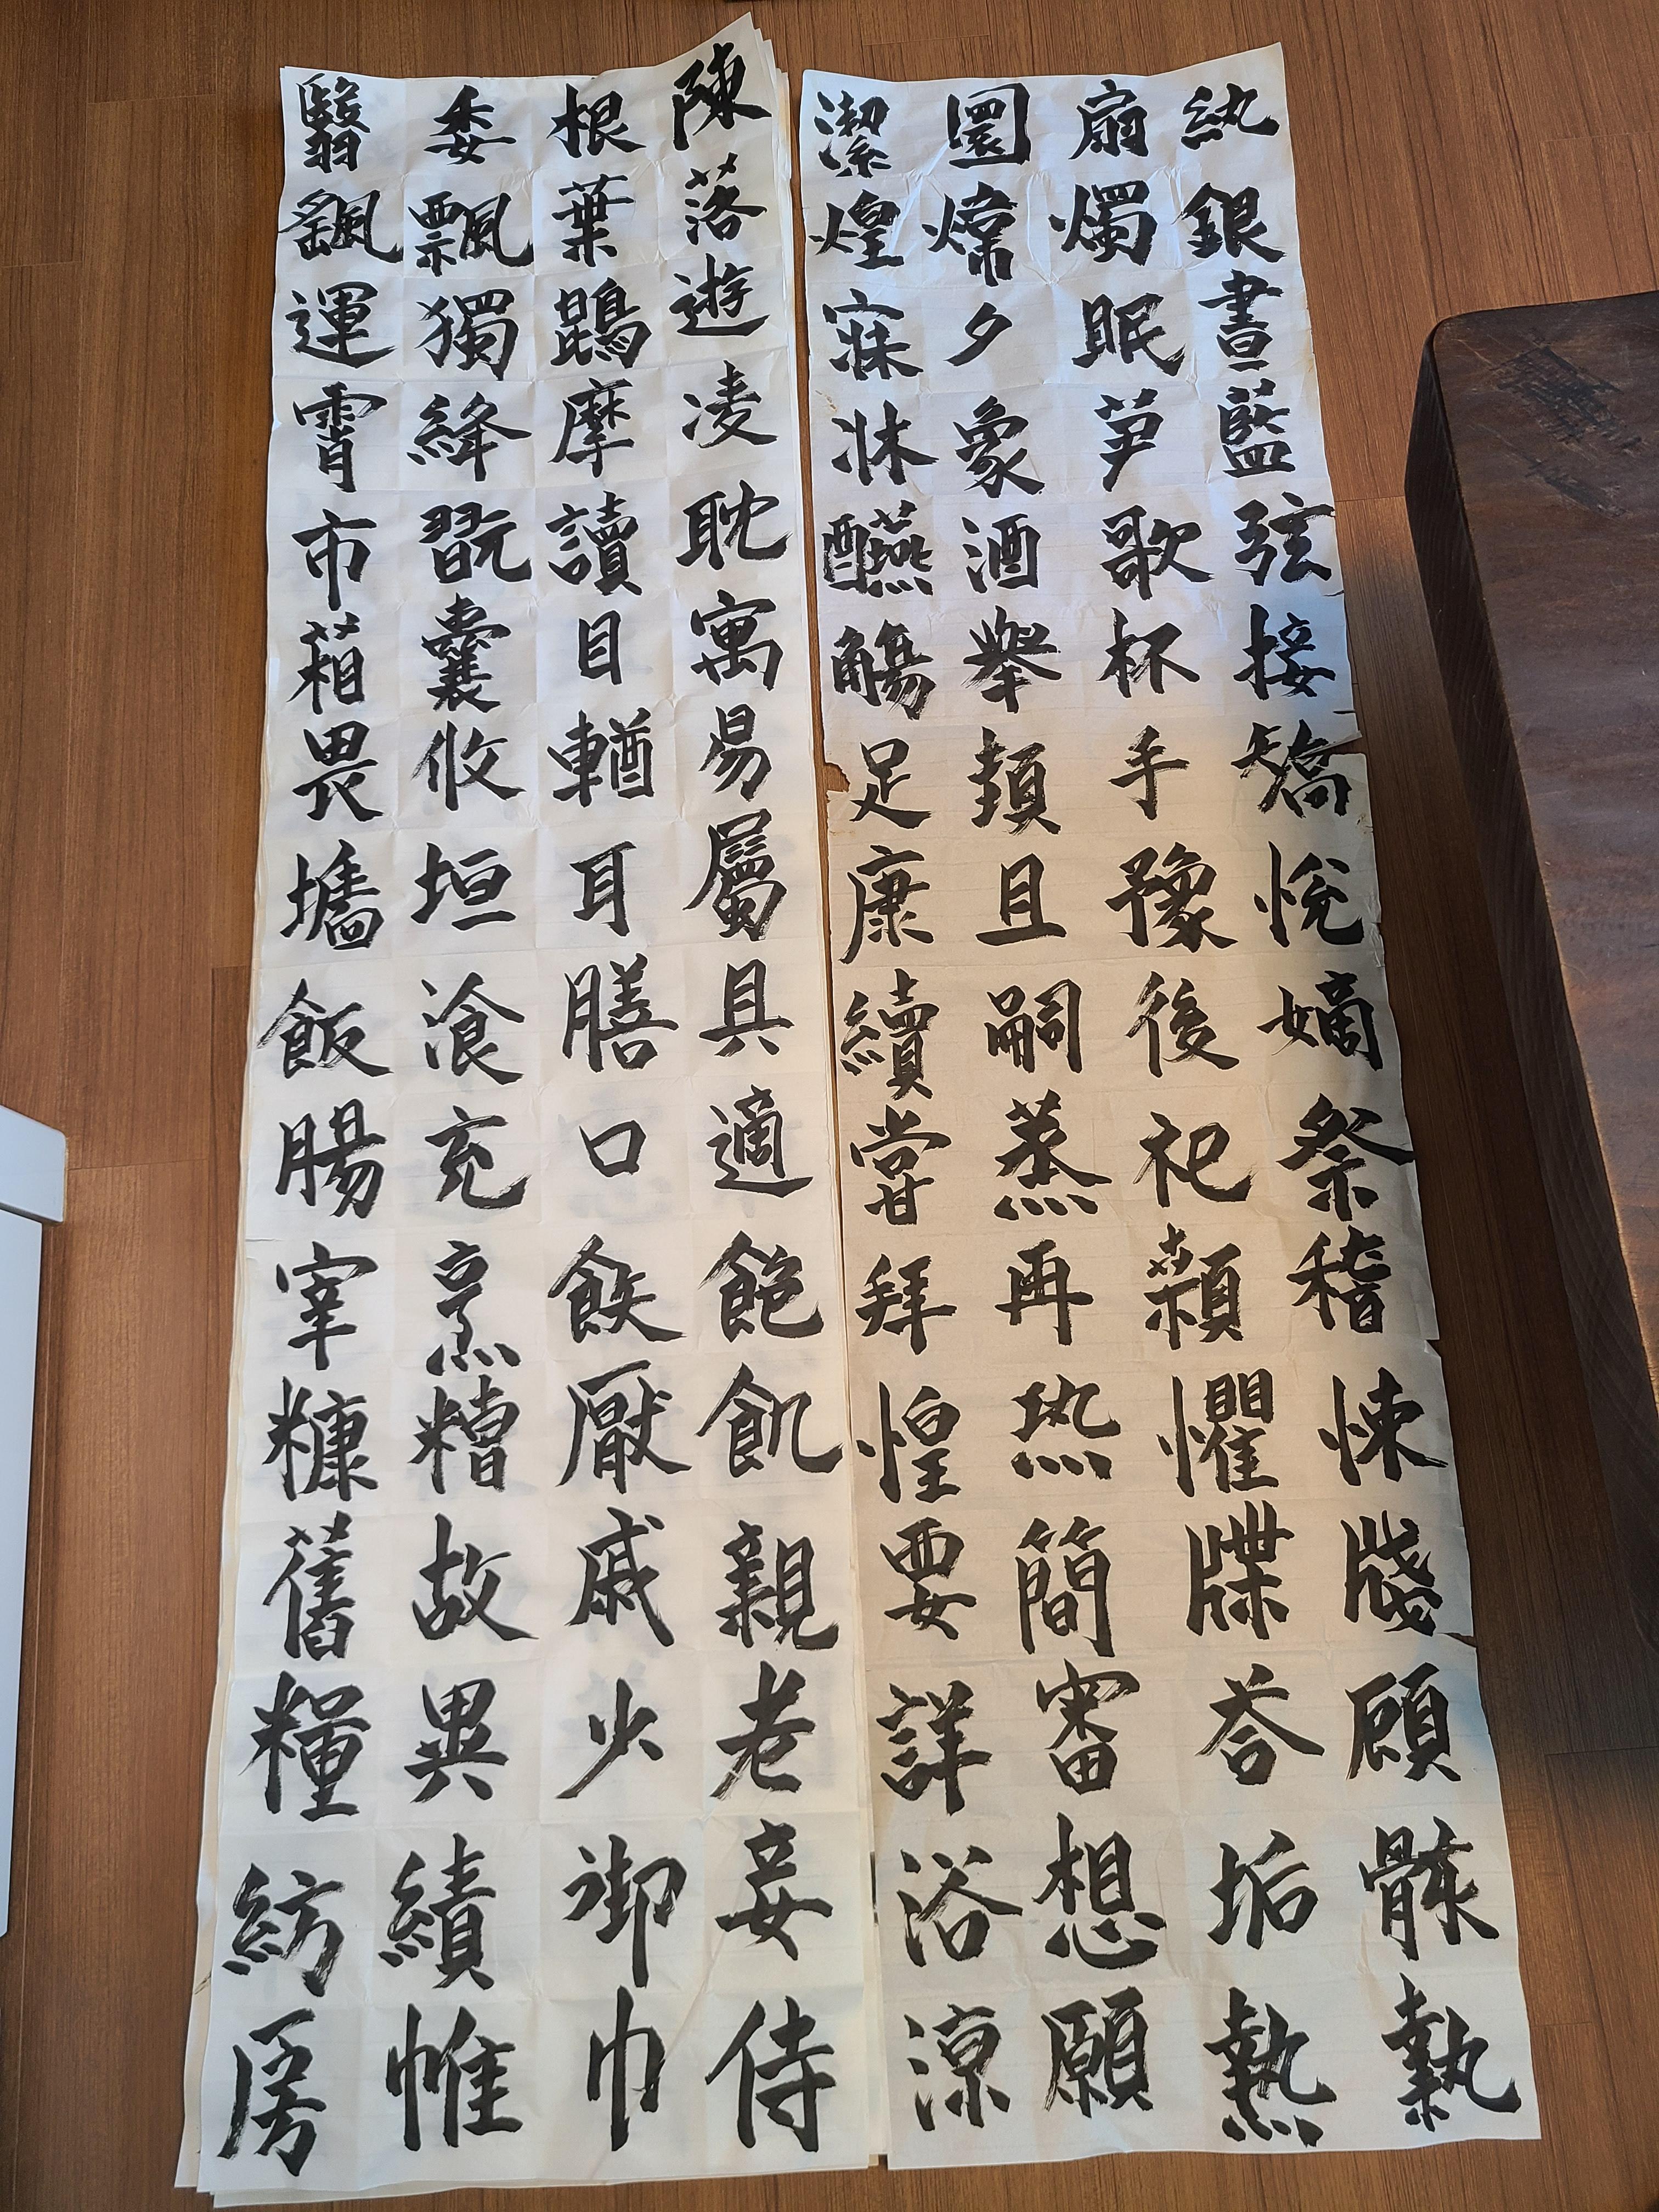 陳根委翳
落葉飄颻
遊鵾獨運
凌摩絳霄
耽讀翫市
寓目囊箱
易輶攸畏
屬耳垣墻
具膳飡飯
適口充腸
飽飫烹宰
飢厭糟糠
親戚故舊
老少異糧
妾御績紡
侍巾帷房
紈扇圜潔
銀燭煒煌
晝眠夕寐
藍笋象牀
弦歌酒醼
接杯舉觴
矯手頓足
悅豫且康
嫡後嗣續
祭祀蒸嘗
稽顙再拜
悚懼恐惶
牋牒簡要
顧荅審詳
骸垢想浴
執熱願涼